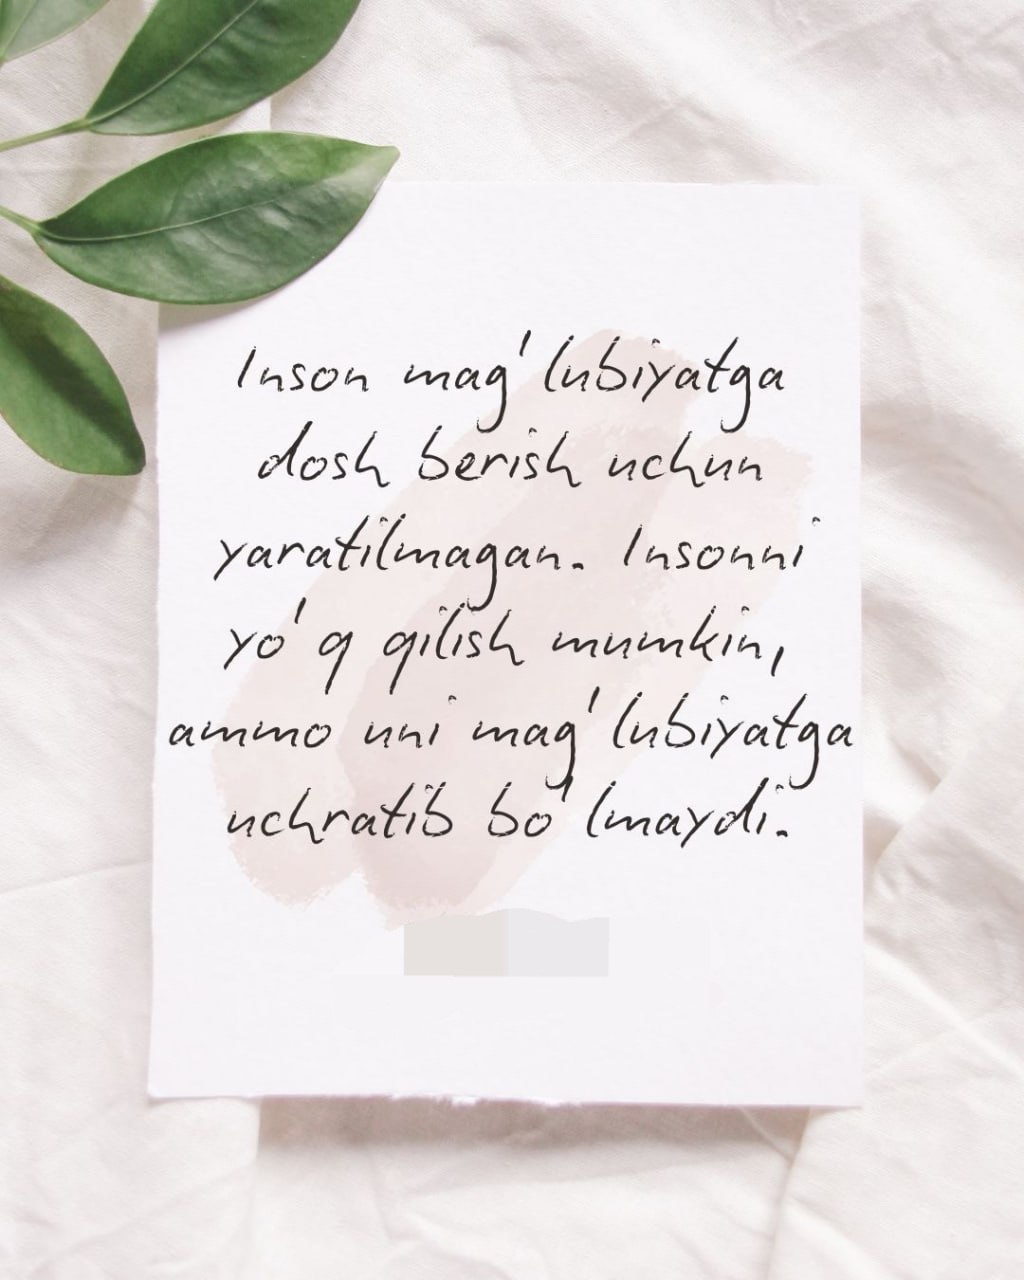 Inson mag'lubiyatga
dosh berish uchun
yaratilmagan. Insonni
yo'q qilish mumkin,
ammo uni mag'lubiyatga
uchratib bo'lmaydi.